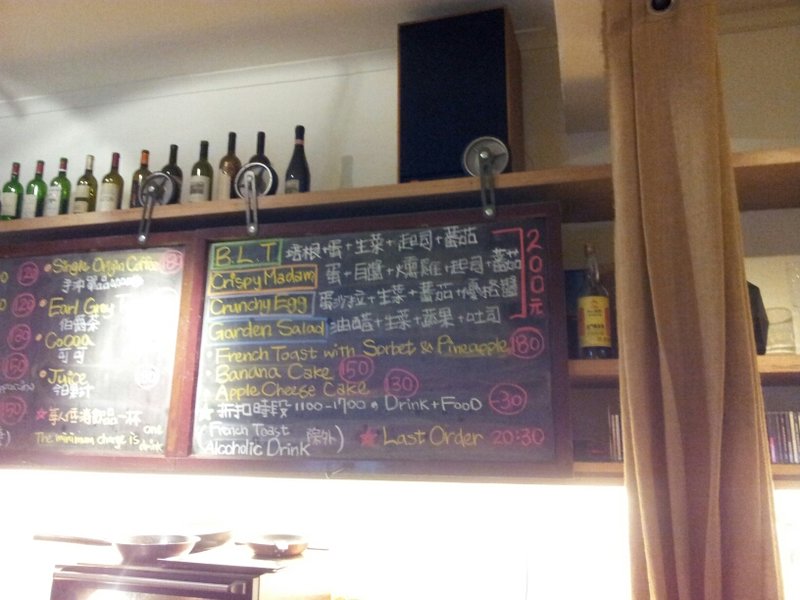 Single Origin Coffee
手沖單品
Earl Grey
伯爵茶
Cocoa
可可
Juice
今日果汁
★單人低消飲品一杯
The minimum charge is one drink
120
B.L.T 培根+蛋+生菜+起司+蕃茄
Crispy Madam 蛋+白醬+燻雞+起司+蕃茄
Crunchy Egg 蛋沙拉+生菜+蕃茄+優格醬
Garden Salad 油醋+生菜+蔬果+吐司
200元
French Toast with Sorbet & Pineapple 180
Banana Cake 150
Apple Cheese Cake 130
★折扣時段 1100-1700 Drink+Food -30
(French Toast
Alcoholic Drink 除外)
★ Last Order 20:30